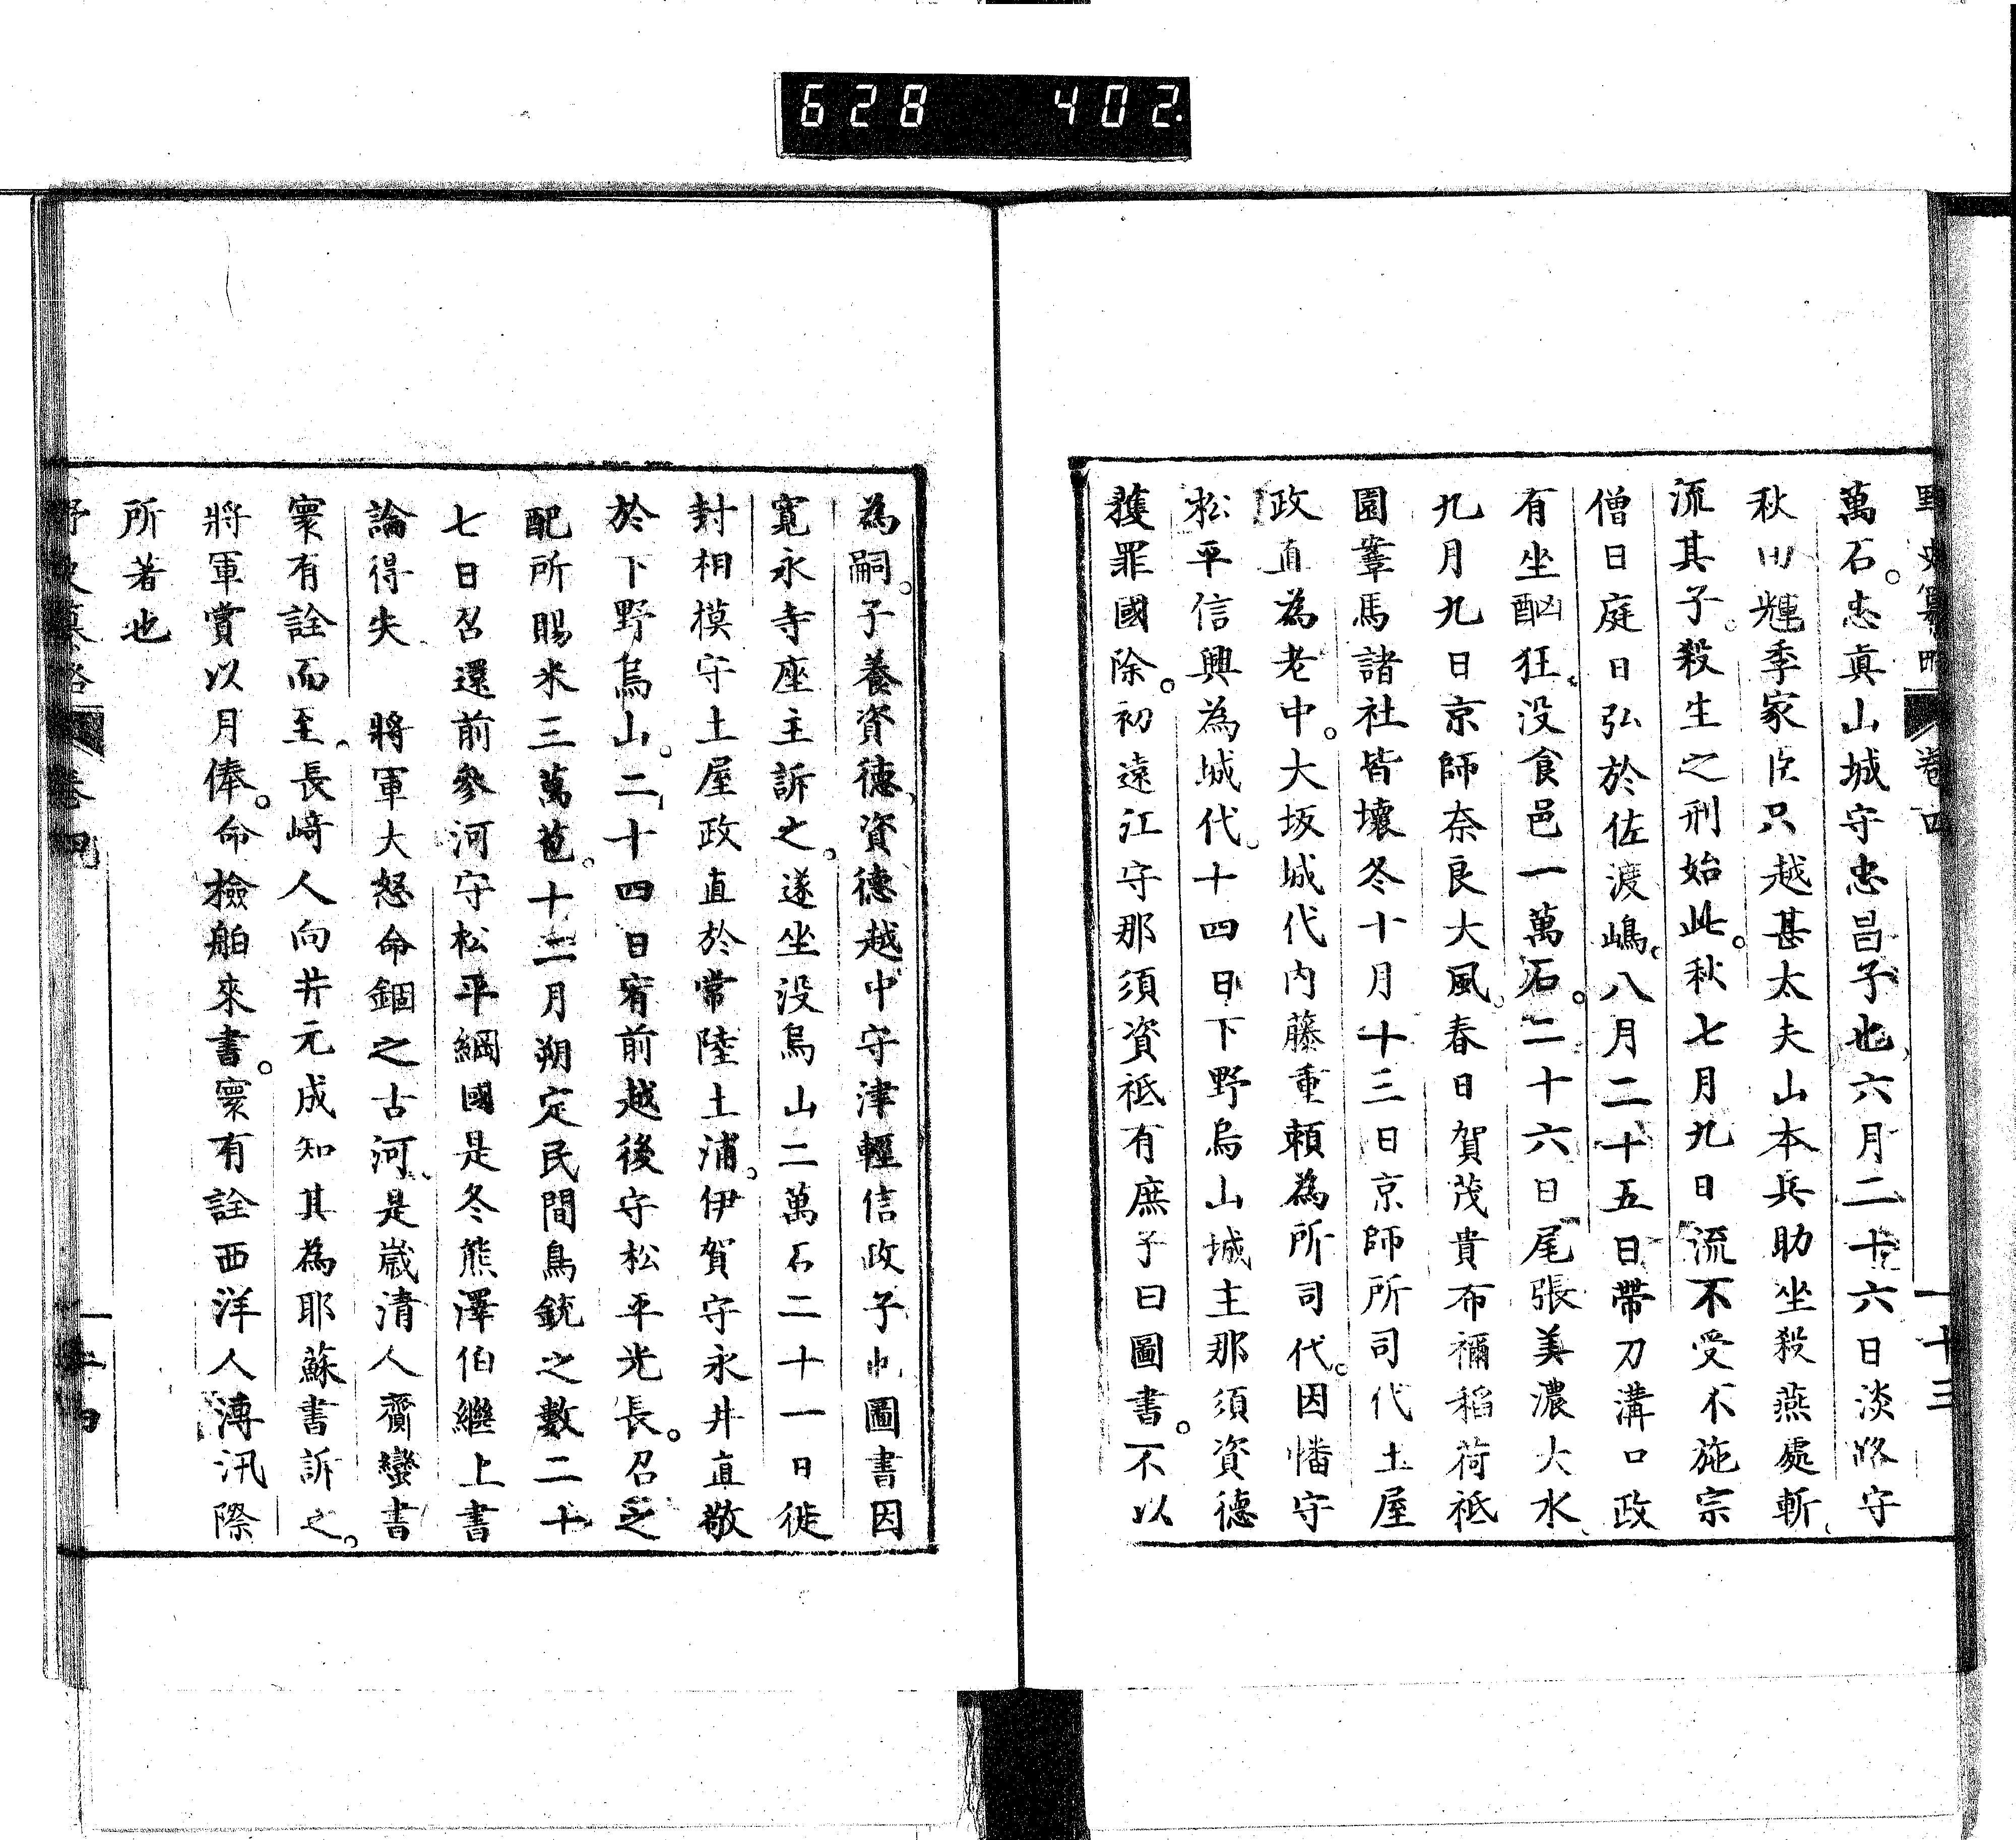 628 402.
野史纂略 卷四 一 十三
萬石。忠真山城守忠昌子也、六月二十六日淡路守
秋田輝季家臣只越甚太夫山本兵助坐殺燕處斬、
流其子。殺生之刑始此。秋七月九日流不受不施宗
僧日庭日弘於佐渡嶋、八月二十五日帶刀溝口政
有坐酗狂、没食邑一萬石。二十六日尾張美濃大水、
九月九日京師奈良大風。春日賀茂貴布禰稻荷祗
園鞏馬諸社皆壞冬十月十三日京師所司代土屋
政直為老中。大坂城代内藤重頼為所司代。因幡守
松平信興為城代。十四日下野烏山城主那須資德
獲罪國除。初遠江守那須資祗有庶子曰圖書。不以
為嗣。子養資德、資德越中守津輕信政子也圖書因
寛永寺座主訴之。遂坐没烏山二萬石二十一日徙
封相模守土屋政直於常陸土浦。伊賀守永井直敬
於下野烏山。二十四日宥前越後守松平光長。召之
配所賜米三萬苞。十二月朔定民間鳥銃之數二十
七日召還前參河守松平綱國是冬熊澤伯繼上書
論得失 將軍大怒命錮之古河、是歲清人齎蠻書
寰有詮而至。長崎人向井元成知其為耶蘇書訴之。
將軍賞以月俸。命檢舶來書。寰有詮西洋人溥汎際
所著也
野史纂略 卷四